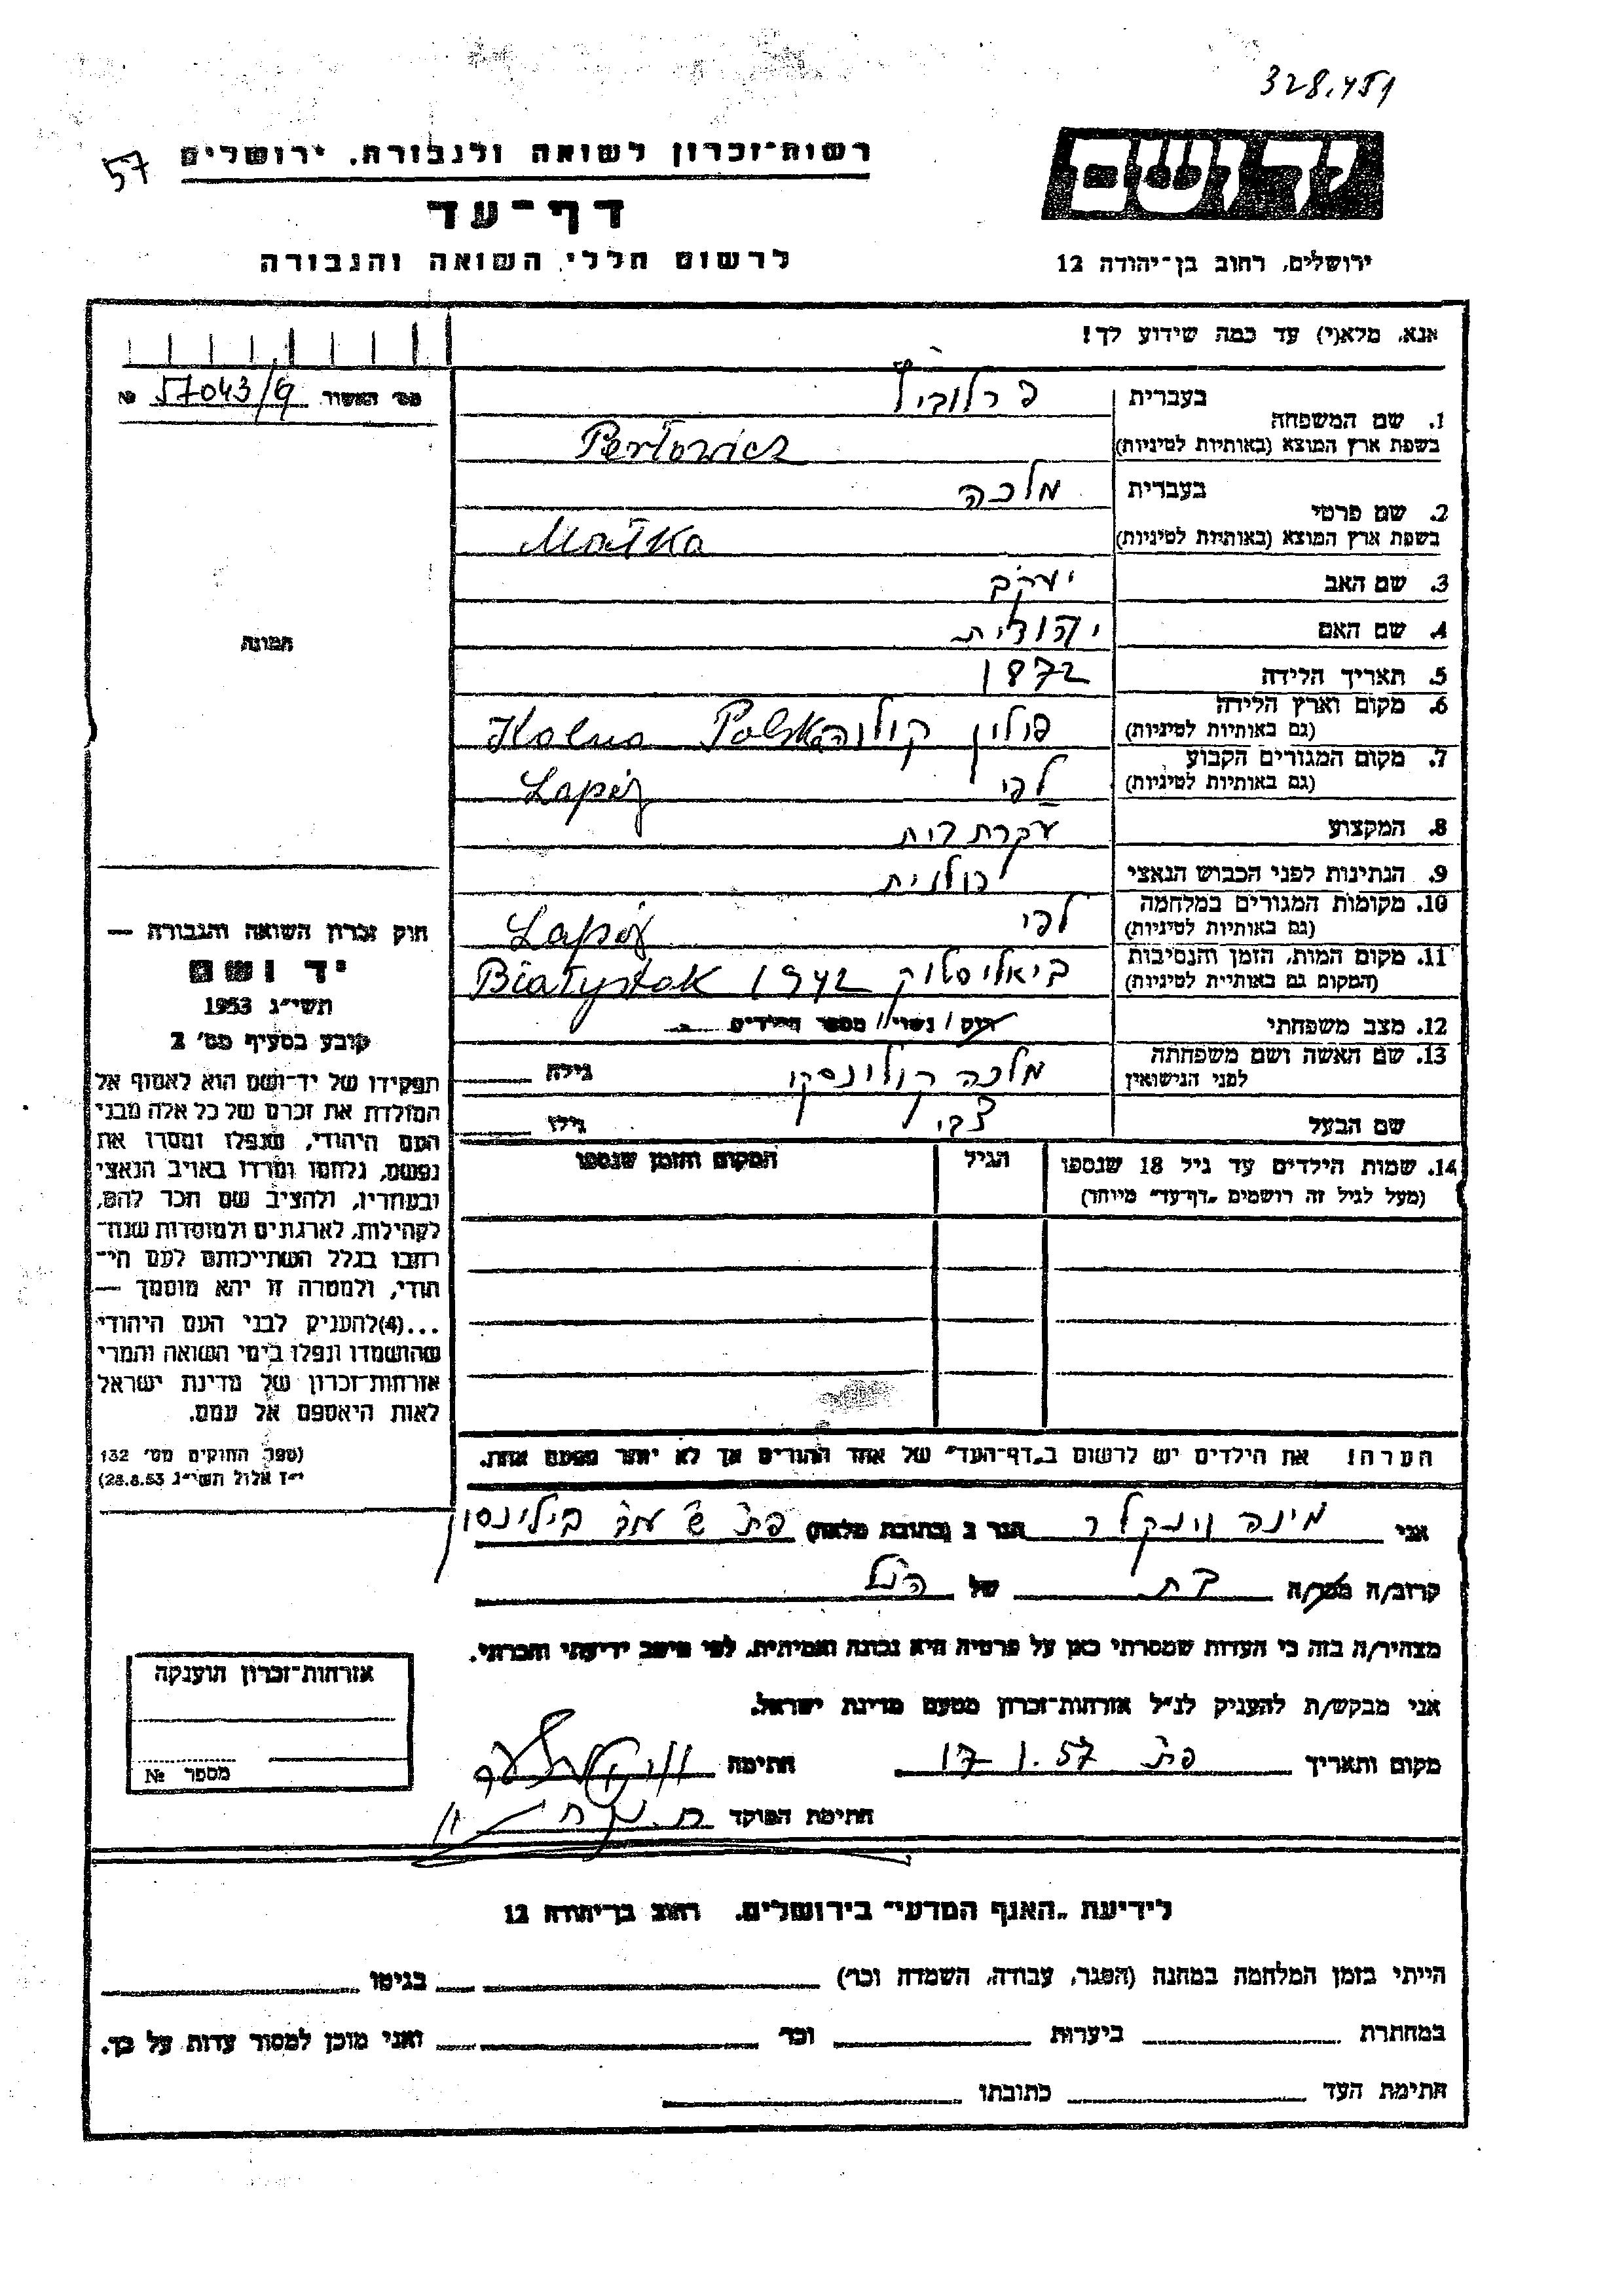 328.451
57
רשות־זכרון לשואה ולגבורה, ירושלים
דף־עד
לרשום חללי השואה והגבורה
יד ושם
ירושלים, רחוב בן־יהודה 12
אנא, מלא(י) עד כמה שידוע לך!
מס' האשור № 57043/9
1. שם המשפחה בעברית פרלוביץ
בשפת ארץ המוצא (באותיות לטיניות) Perłowicz
2. שם פרטי בעברית מלכה
בשפת ארץ המוצא (באותיות לטיניות) Małka
3. שם האב יעקב
4. שם האם יהודית
5. תאריך הלידה 1872
6. מקום וארץ הלידה (גם באותיות לטיניות) פולין קולנה Polska Kolno
7. מקום המגורים הקבוע (גם באותיות לטיניות) לפי Łapy
8. המקצוע עקרת בית
9. הנתינות לפני הכבוש הנאצי פולנית
10. מקומות המגורים במלחמה (גם באותיות לטיניות) לפי Łapy
11. מקום המות, הזמן והנסיבות (המקום גם באותיות לטיניות) ביאליסטוק 1942 Białystok
12. מצב משפחתי רוק / נשוי / מספר הילדים
13. שם האשה ושם משפחתה לפני הנישואין מלכה גילה
שם הבעל צבי גילו
14. שמות הילדים עד גיל 18 שנספו
(מעל לגיל זה רושמים „דף־עד" מיוחד)
הגיל
המקום והזמן שנספו
הערה: את הילדים יש לרשום ב„דף־העד" של אחד ההורים אך לא יותר מפעם אחת.
תמונה
חוק זכרון השואה והגבורה —
יד ושם
תשי"ג 1953
קובע בסעיף מס' 2
תפקידו של יד־ושם הוא לאסוף אל
המולדת את זכרם של כל אלה מבני
העם היהודי, שנפלו ומסרו את
נפשם, נלחמו ומרדו באויב הנאצי
ובעוזריו, ולהציב שם וזכר להם,
לקהילות, לארגונים ולמוסדות שנח־
רבו בגלל השתייכותם לעם הי־
הודי, ולמטרה זו יהא מוסמך —
...(4) להעניק לבני העם היהודי
שהושמדו ונפלו בימי השואה והמרי
אזרחות־זכרון של מדינת ישראל
לאות היאספם אל עמם.
(ספר החוקים מס' 132
י"ז אלול תשי"ג 28.8.53)
אני מינה וינקלר הגר ב (כתובת מלאה) פת
קרוב/ה מכר/ה בת של הנ"ל
מצהיר/ה בזה כי העדות שמסרתי כאן על פרטיה היא נכונה ואמיתית, לפי מיטב ידיעתי והכרתי.
אני מבקש/ת להעניק לנ"ל אזרחות־זכרון מטעם מדינת ישראל.
מקום ותאריך פת 17.1.57 חתימה
חתימת הפוקד
אזרחות־זכרון הוענקה
מספר №
לידיעת „האגף המדעי" בירושלים, רחוב בן־יהודה 12
הייתי בזמן המלחמה במחנה (הסגר, עבודה, השמדה וכו') בגיטו
במחתרת ביערות וכו' ואני מוכן למסור עדות על כך.
חתימת העד כתובתו